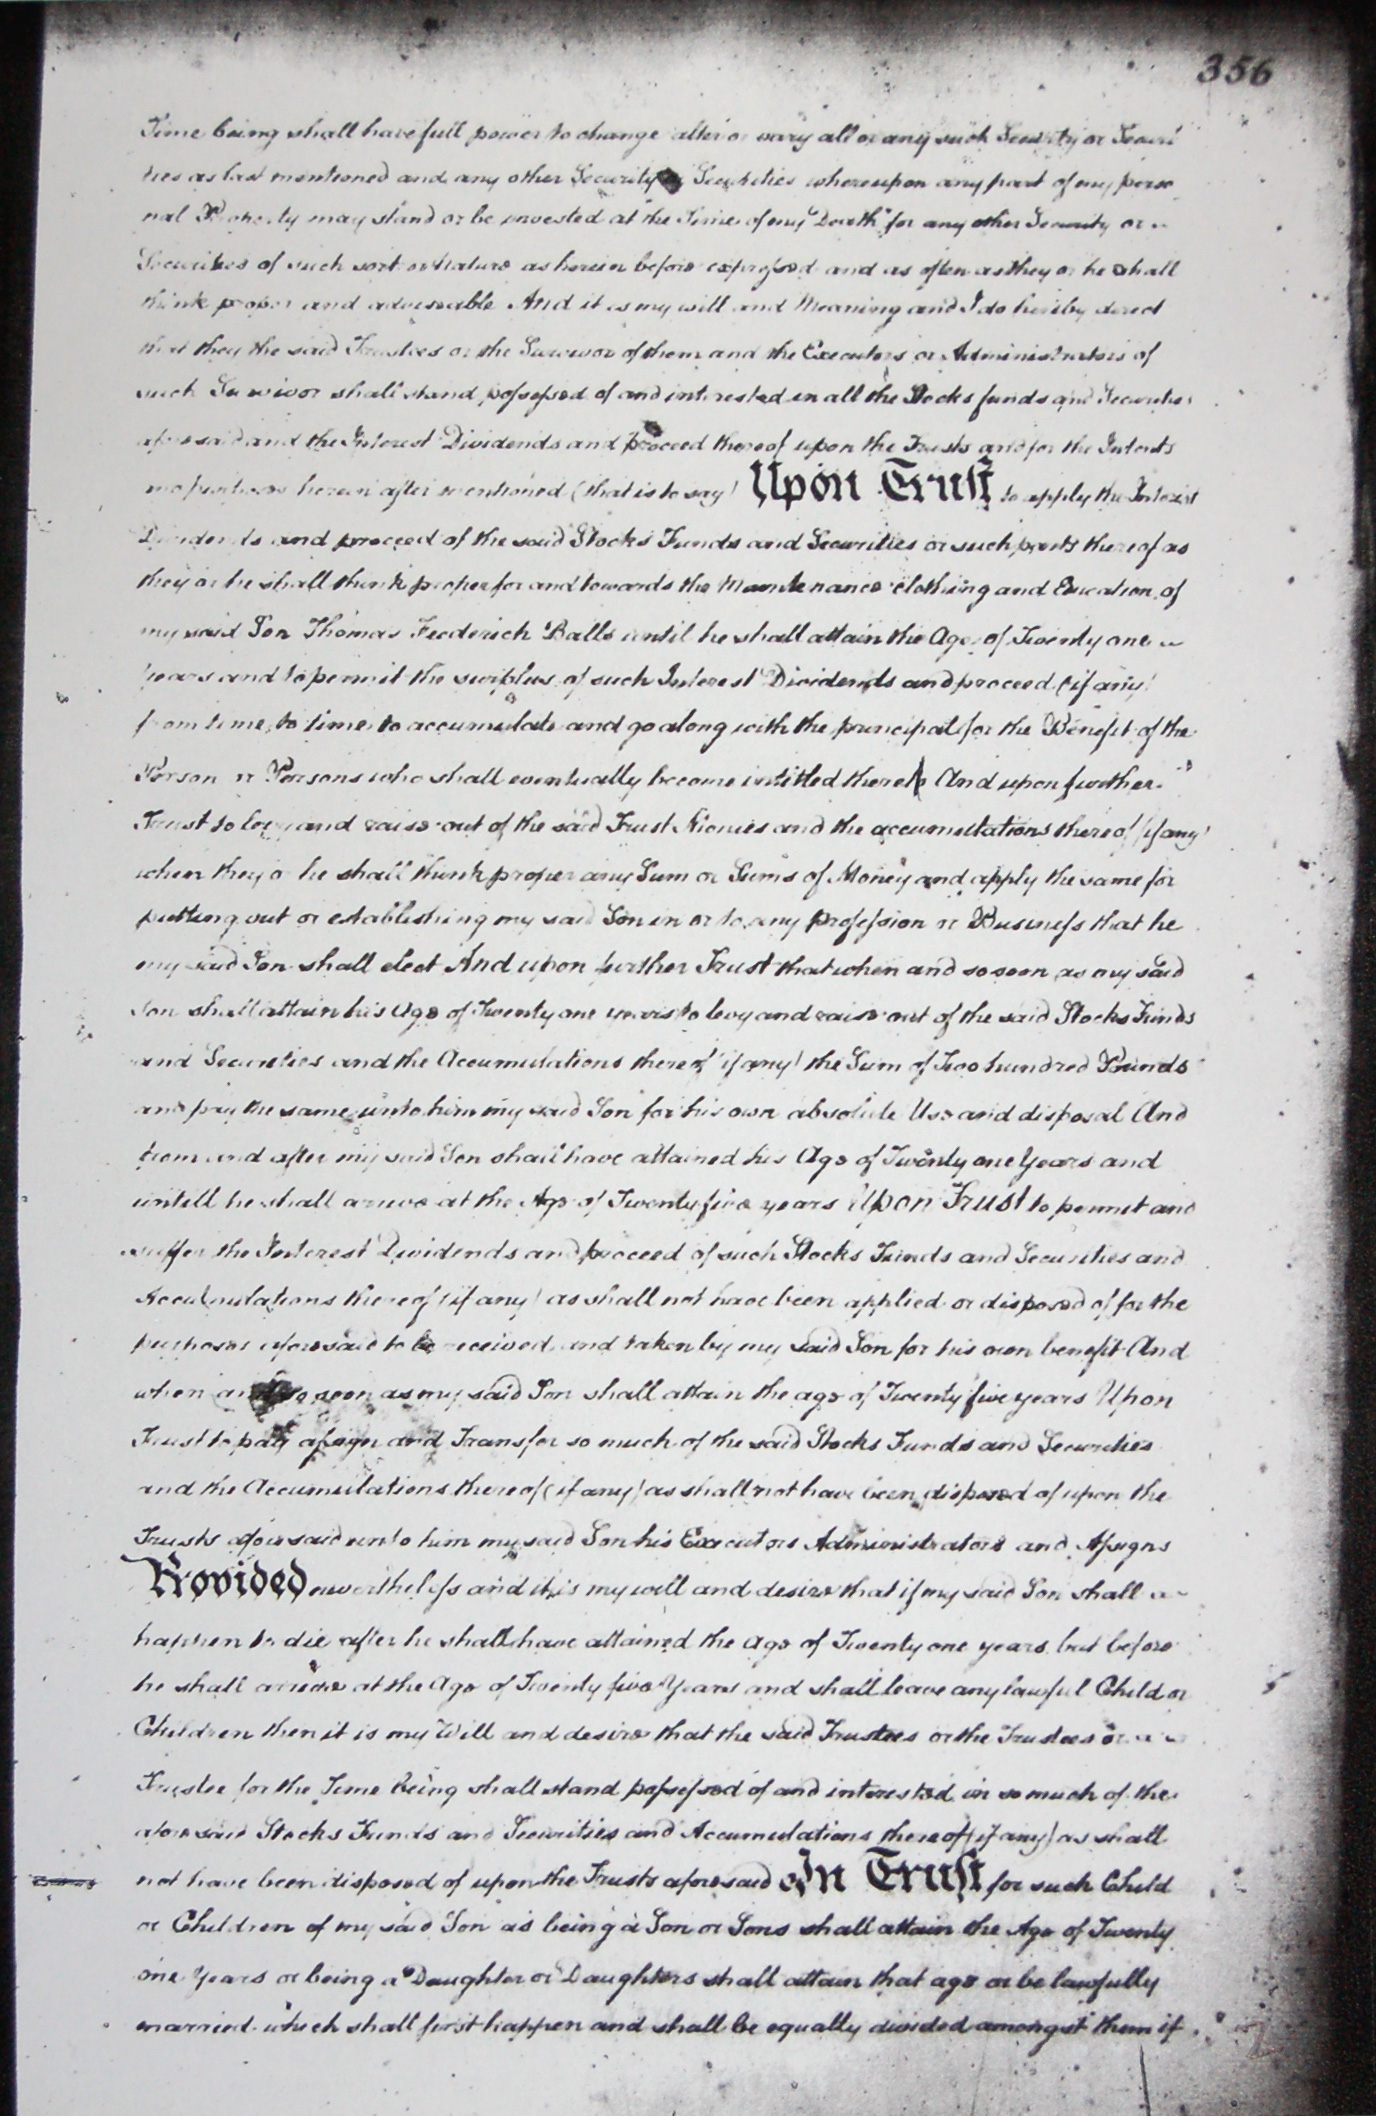 356
Time being shall have full power to change alter or vary all or any such Security or Securi
ties as last mentioned and any other Security or Securities whereupon any part of my perso
nal Property may stand or be invested at the Time of my Death for any other Security or
Securities of such sort or Nature as herein before expressed and as often as they or he shall
think proper and adviseable And it is my will and Meaning and I do hereby direct
that they the said Trustees or the Survivor of them and the Executors or Administrators of
such Survivor shall stand possessed of and interested in all the Stocks funds and Securities
aforesaid and the Interest Dividends and proceed thereof upon the Trusts and for the Intents
and purposes herein after mentioned (that is to say) Upon Trust to apply the Interest
Dividends and proceed of the said Stocks Funds and Securities or such parts thereof as
they or he shall think proper for and towards the Maintenance clothing and Education of
my said Son Thomas Frederick Balls until he shall attain the Age of Twenty one
Years and to permit the surplus of such Interest Dividends and proceed (if any)
from time to time to accumulate and go along with the principal for the Benefit of the
Person or Persons who shall eventually become intitled thereto And upon further
Trust to levy and raise out of the said Trust Monies and the accumulations thereof (if any)
when they or he shall think proper any Sum or Sums of Money and apply the same for
putting out or establishing my said Son in or to any profession or Business that he
my said Son shall elect And upon further Trust that when and so soon as my said
Son shall attain his Age of Twenty one years to levy and raise out of the said Stocks Funds
and Securities and the Accumulations thereof (if any) the Sum of Two hundred Pounds
and pay the same unto him my said Son for his own absolute Use and disposal And
from and after my said Son shall have attained his Age of Twenty one Years and
untill he shall arrive at the Age of Twenty five years Upon Trust to permit and
suffer the Interest Dividends and proceed of such Stocks Funds and Securities and
Accumulations thereof (if any) as shall not have been applied or disposed of for the
purposes aforesaid to be received and taken by my said Son for his own benefit And
when and so soon as my said Son shall attain the age of Twenty five years Upon
Trust to pay assign and Transfer so much of the said Stocks Funds and Securities
and the Accumulations thereof (if any) as shall not have been disposed of upon the
Trusts aforesaid unto him my said Son his Executors Administrators and Assigns
Provided nevertheless and it is my will and desire that if my said Son shall
happen to die after he shall have attained the age of Twenty one years but before
he shall arrive at the Age of Twenty five Years and shall leave any lawful Child or
Children then it is my Will and desire that the said Trustees or the Trustees or
Trustee for the Time being shall stand possessed of and interested in so much of the
aforesaid Stocks Funds and Securities and Accumulations thereof (if any) as shall
not have been disposed of upon the Trusts aforesaid In Trust for such Child
or Children of my said Son as being a Son or Sons shall attain the Age of Twenty
one Years or being a Daughter or Daughters shall attain that age or be lawfully
married which shall first happen and shall be equally divided amongst them if